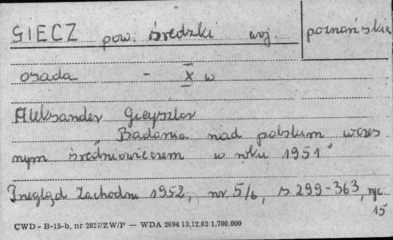 GIECZ pow. średzki woj. poznańskie
osada - X w
Aleksander Gieysztor
Badania nad polskim wczes
nym średniowieczem w roku 1951"
Przegląd Zachodni 1952, nr 5/6, s 299-363, ryc
15
CWD - B-15-b, nr 2827/ZW/P — WDA 2694 13.12.62 1.700.000